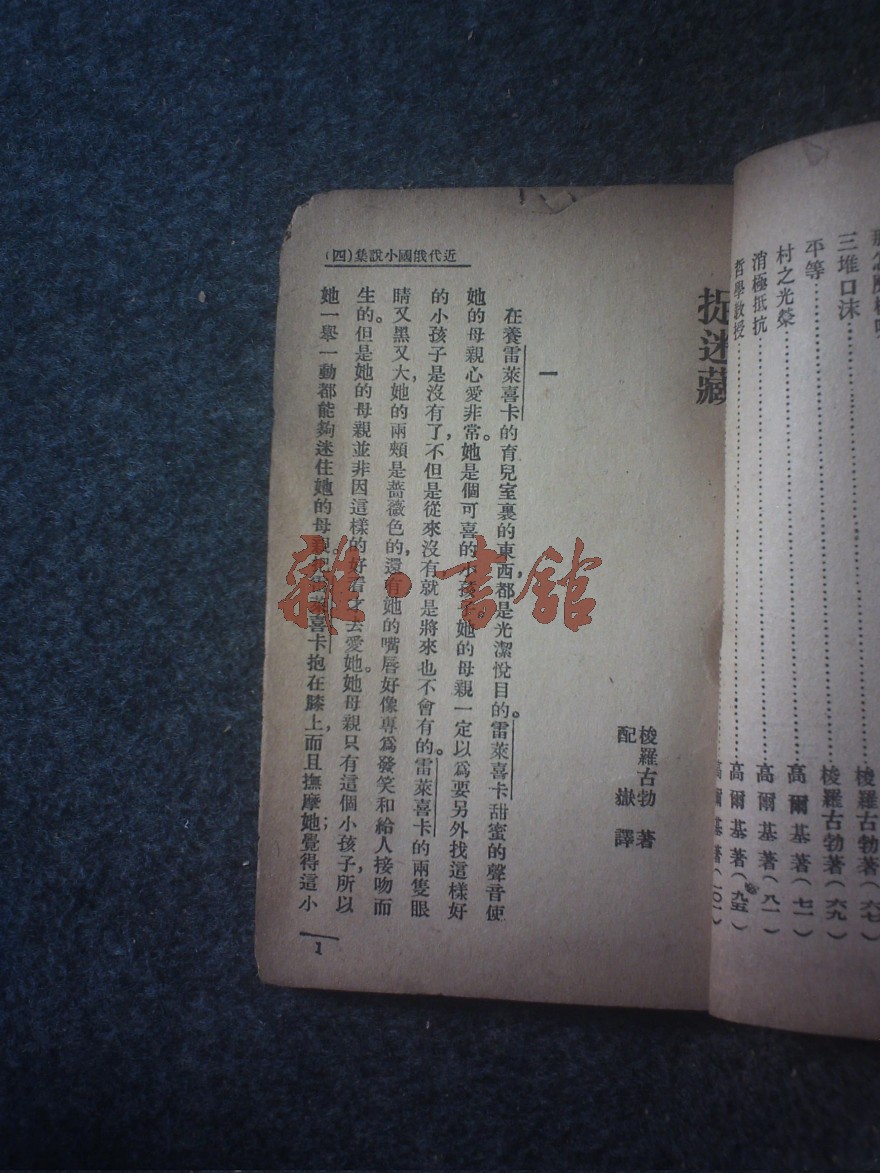 梭羅古勃著(六七)
三堆口沫……梭羅古勃著(六九)
平等……高爾基著(七一)
村之光榮……高爾基著(八一)
消極抵抗……高爾基著(九五)
哲學教授……高爾基著(一〇一)
近代俄國小說集(四)
捉迷藏
梭羅古勃 著
配嶽 譯
一
在養雷萊喜卡的育兒室裏的東西,都是光潔悅目的。雷萊喜卡甜蜜的聲音使
她的母親心愛非常。她是個可喜的小孩子。她的母親一定以爲要另外找這樣好
的小孩子是沒有了,不但是從來沒有,就是將來也不會有的。雷萊喜卡的兩隻眼
睛又黑又大,她的兩頰是薔薇色的,還有她的嘴唇好像專爲發笑和給人接吻而
生的。但是她的母親並非因這樣的好看才去愛她。她母親只有這個小孩子,所以
她一舉一動都能夠迷住她的母親。把雷萊喜卡抱在膝上,而且撫摩她覺得這小
1
雜·書館